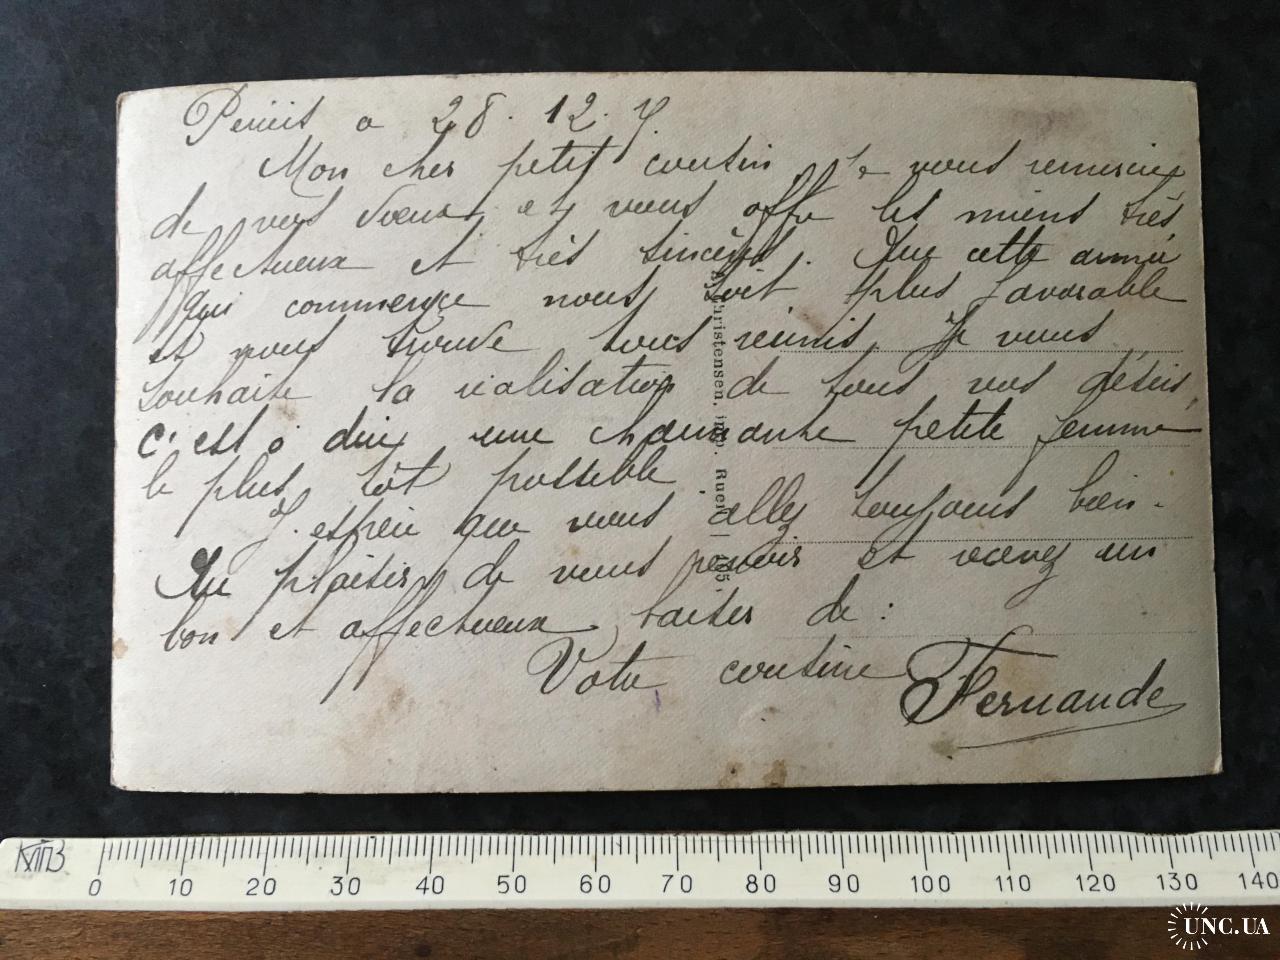 a 28. 12.
Mon cher petit cousin, Je vous remercie
de vos voeux et vous offre les miens très
affectueux et très sincères. Que cette année
qui commence nous soit plus favorable
et nous trouve tous réunis. Je vous
souhaite la réalisation de tous vos désirs,
c'est à dire une charmante petite femme
le plus tôt possible
J'espère que vous allez toujours bien.
Au plaisir de vous revoir et recevez un
bon et affectueux baiser de :
Votre cousine Fernande
Christensen, imp. Rueil
0 10 20 30 40 50 60 70 80 90 100 110 120 130 140
UNC.UA